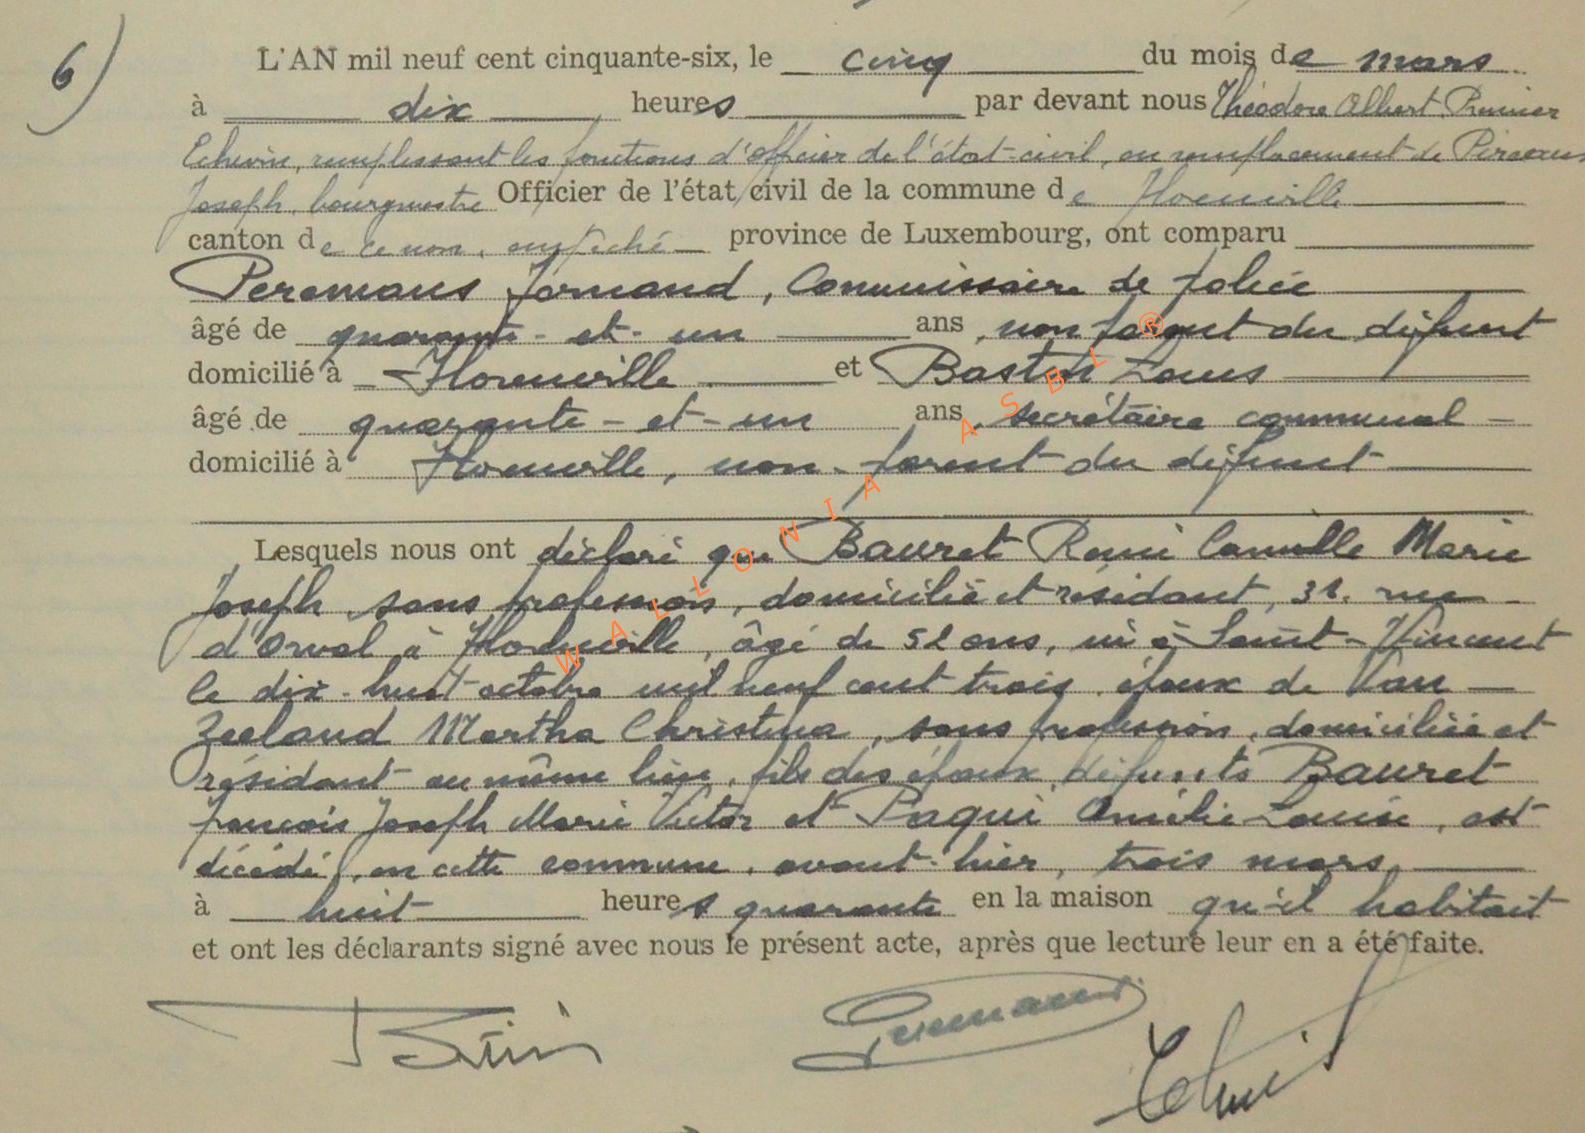 6)
L'AN mil neuf cent cinquante-six, le cinq du mois de mars
à dix heures par devant nous Théodore Albert, Premier
Echevin, remplissant les fonctions d'officier de l'état-civil, en remplacement de
Joseph, bourgmestre Officier de l'état civil de la commune de Florenville
canton de ce nom, empêché province de Luxembourg, ont comparu
Peremans Fernand, Commissaire de police
âgé de quarante-et-un ans, non parent du défunt
domicilié à Florenville et Bastin Louis
âgé de quarante-et-un ans, secrétaire communal
domicilié à Florenville, non-parent du défunt
Lesquels nous ont déclaré que Bauret Remi Camille Marie
Joseph, sans profession, domicilié et résidant, 31. rue
d'Orval à Florenville, âgé de 52 ans, né à Saint-Vincent
le dix-huit octobre mil neuf cent trois, époux de Van
Zeeland Martha Christina, sans profession, domiciliée et
résidant au même lieu, fils des époux défunts Bauret
François Joseph Marie Victor et Paqui Amélie Louise, est
décédé, en cette commune, avant-hier, trois mars,
à huit heures quarante en la maison qu'il habitait
et ont les déclarants signé avec nous le présent acte, après que lecture leur en a été faite.
WALLONIA ASBL ®